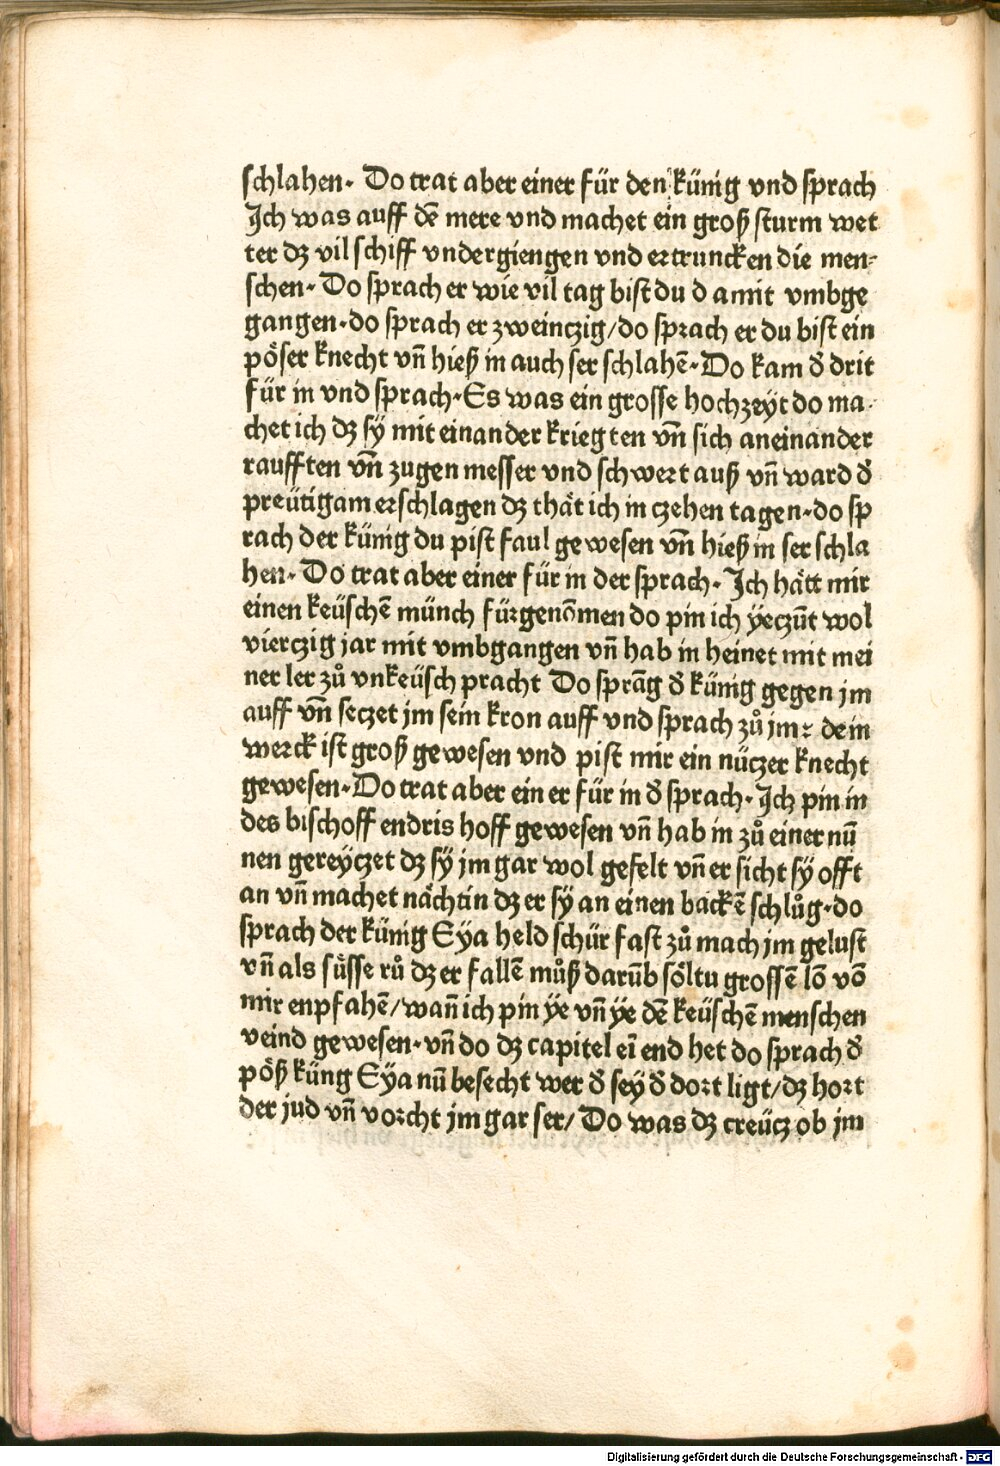 schlahen. Do trat aber einer für den künig vnd sprach
Ich was auff dē mere vnd machet ein groß sturm wet
ter dz vil schiff vndergiengen vnd ertruncken die men-
schen. Do sprach er wie vil tag bist du damit vmbge
gangen. do sprach er zweinczig/ do sprach er du bist ein
pöser knecht vn̄ hieß in auch ser schlahē. Do kam d̓ drit
für in vnd sprach. Es was ein grosse hochzeyt do ma-
chet ich dz sÿ mit einander kriegten vn̄ sich aneinander
raufften vn̄ zugen messer vnd schwert auß vn̄ ward d̓
preütigam erschlagen dz thät ich in czehen tagen. do sp
rach der künig du pist faul gewesen vn̄ hieß in ser schla
hen. Do trat aber einer für in der sprach. Ich hätt mir
einen keüschē münch fürgenōmen do pin ich ÿeczūt wol
vierczig jar mit vmbgangen vn̄ hab in heinet mit mei
ner ler zů vnkeüsch pracht Do sprāg d̓ künig gegen jm
auff vn̄ seczet jm sein kron auff vnd sprach zů jm: dein
werck ist groß gewesen vnd pist mir ein nüczer knecht
gewesen. Do trat aber einer für in d̓ sprach. Ich pin in
des bischoff endris hoff gewesen vn̄ hab in zů einer nū
nen gereÿczet dz sÿ jm gar wol gefelt vn̄ er sicht sÿ offt
an vn̄ machet nächtin dz er sÿ an einen backē schlůg. do
sprach der künig Eÿa held schür fast zů mach jm gelust
vn̄ als süsse rů dz er fallē můß darūb söltu grossē lō vō
mir enpfahē/ wan̄ ich pin ÿe vn̄ ÿe dē keüschē menschen
veind gewesen. vn̄ do dz capitel eī end het do sprach d̓
pöß küng Eÿa nū besecht wer d̓ seÿ d̓ dort ligt/ dz hort
der jud vn̄ vorcht jm gar ser/ Do was dz creücz ob jm
Digitalisierung gefördert durch die Deutsche Forschungsgemeinschaft - DFG